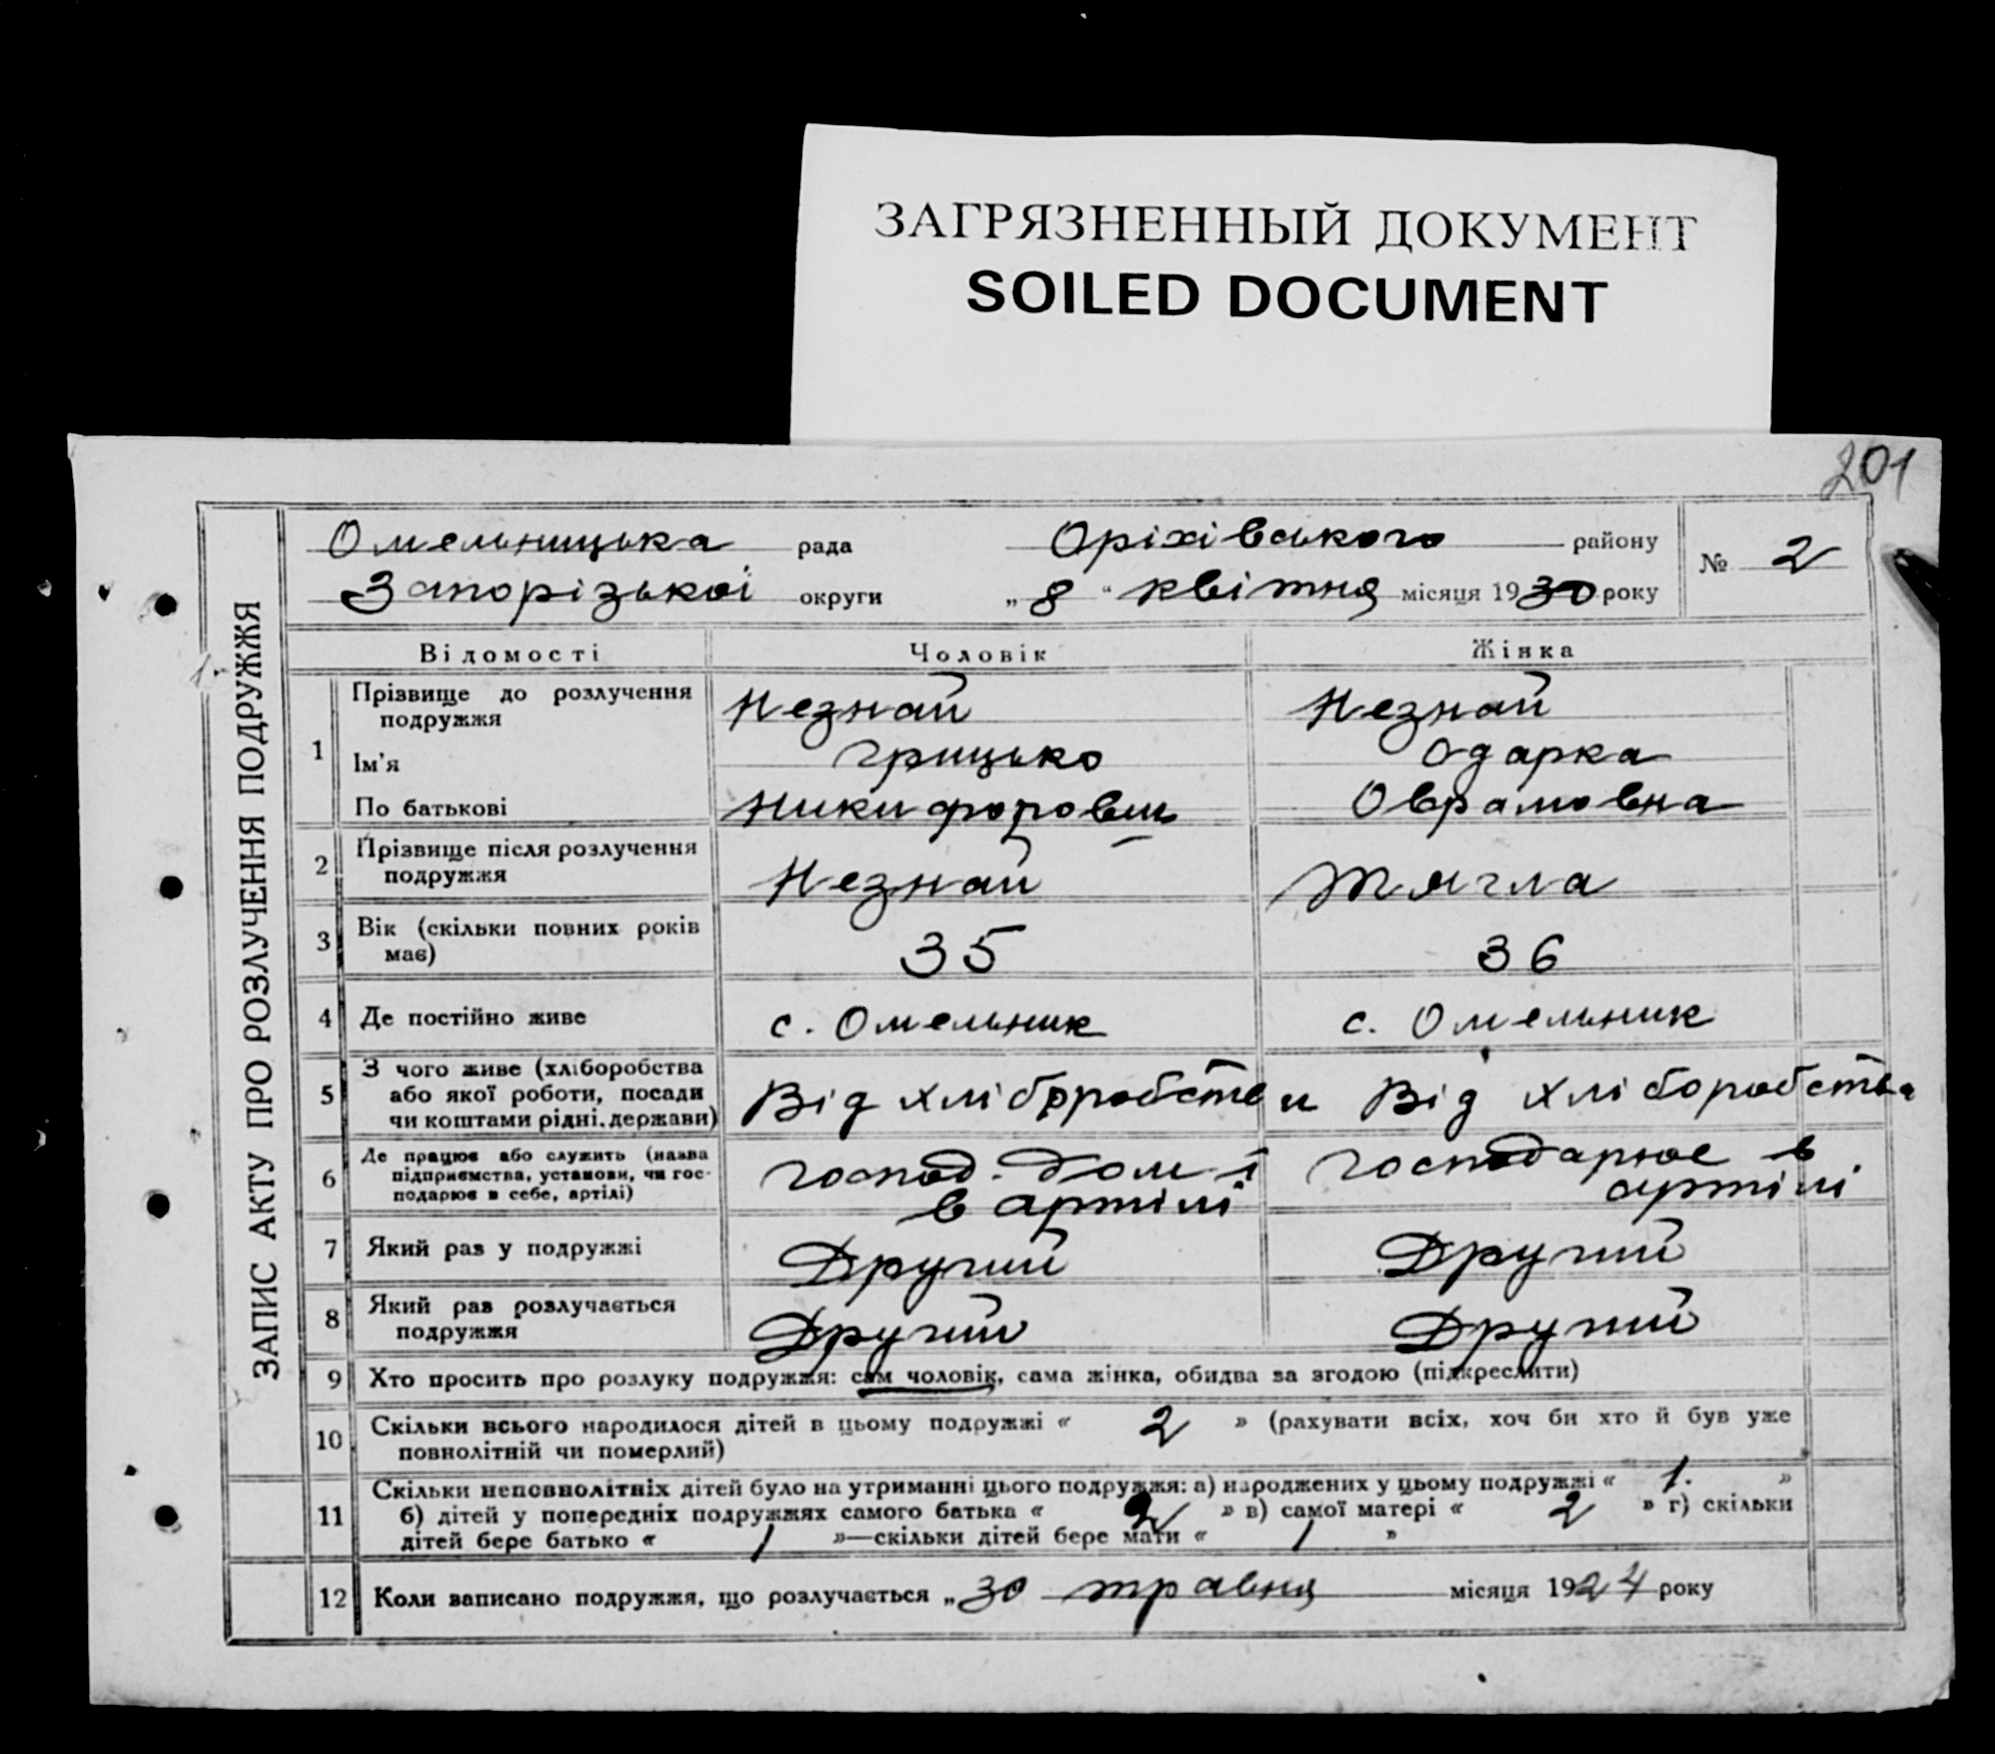 ЗАГРЯЗНЕННЫЙ ДОКУМЕНТ
SOILED DOCUMENT
201
ЗАПИС АКТУ ПРО РОЗЛУЧЕННЯ ПОДРУЖЖЯ
Омельницька рада Оріхівського району № 2
Запорізької округи „ 8 " квітня місяця 1930 року
Відомості Чоловік Жінка
1 Прізвище до розлучення подружжя Незнай Незнай
Ім'я Грицько Одарка
По батькові Никифорович Оврамовна
2 Прізвище після розлучення
подружжя Незнай Тягла
3 Вік (скільки повних років
має) 35 36
4 Де постійно живе с. Омельник с. Омельник
5 З чого живе (хліборобства
або якої роботи, посади
чи коштами рідні. держави) Від хліборобства Від хліборобства
6 Де працює або служить (назва
підприємства, установи, чи гос-
подарює в себе, артілі) господ. дом і господарює в
в артілі артілі
7 Який раз у подружжі Другий Другий
8 Який раз розлучається
подружжя Другий Другий
9 Хто просить про розлуку подружжя: сам чоловік, сама жінка, обидва за згодою (підкреслити)
10 Скільки всього народилося дітей в цьому подружжі « 2 » (рахувати всіх, хоч би хто й був уже
повнолітній чи померлий)
11 Скільки неповнолітніх дітей було на утриманні цього подружжя: а) народжених у цьому подружжі « 1. »
б) дітей у попередніх подружжях самого батька « 2 » в) самої матері « 2 » г) скільки
дітей бере батько « 1 »—скільки дітей бере мати « 1 »
12 Коли записано подружжя, що розлучається „ 30 травня місяця 1924 року